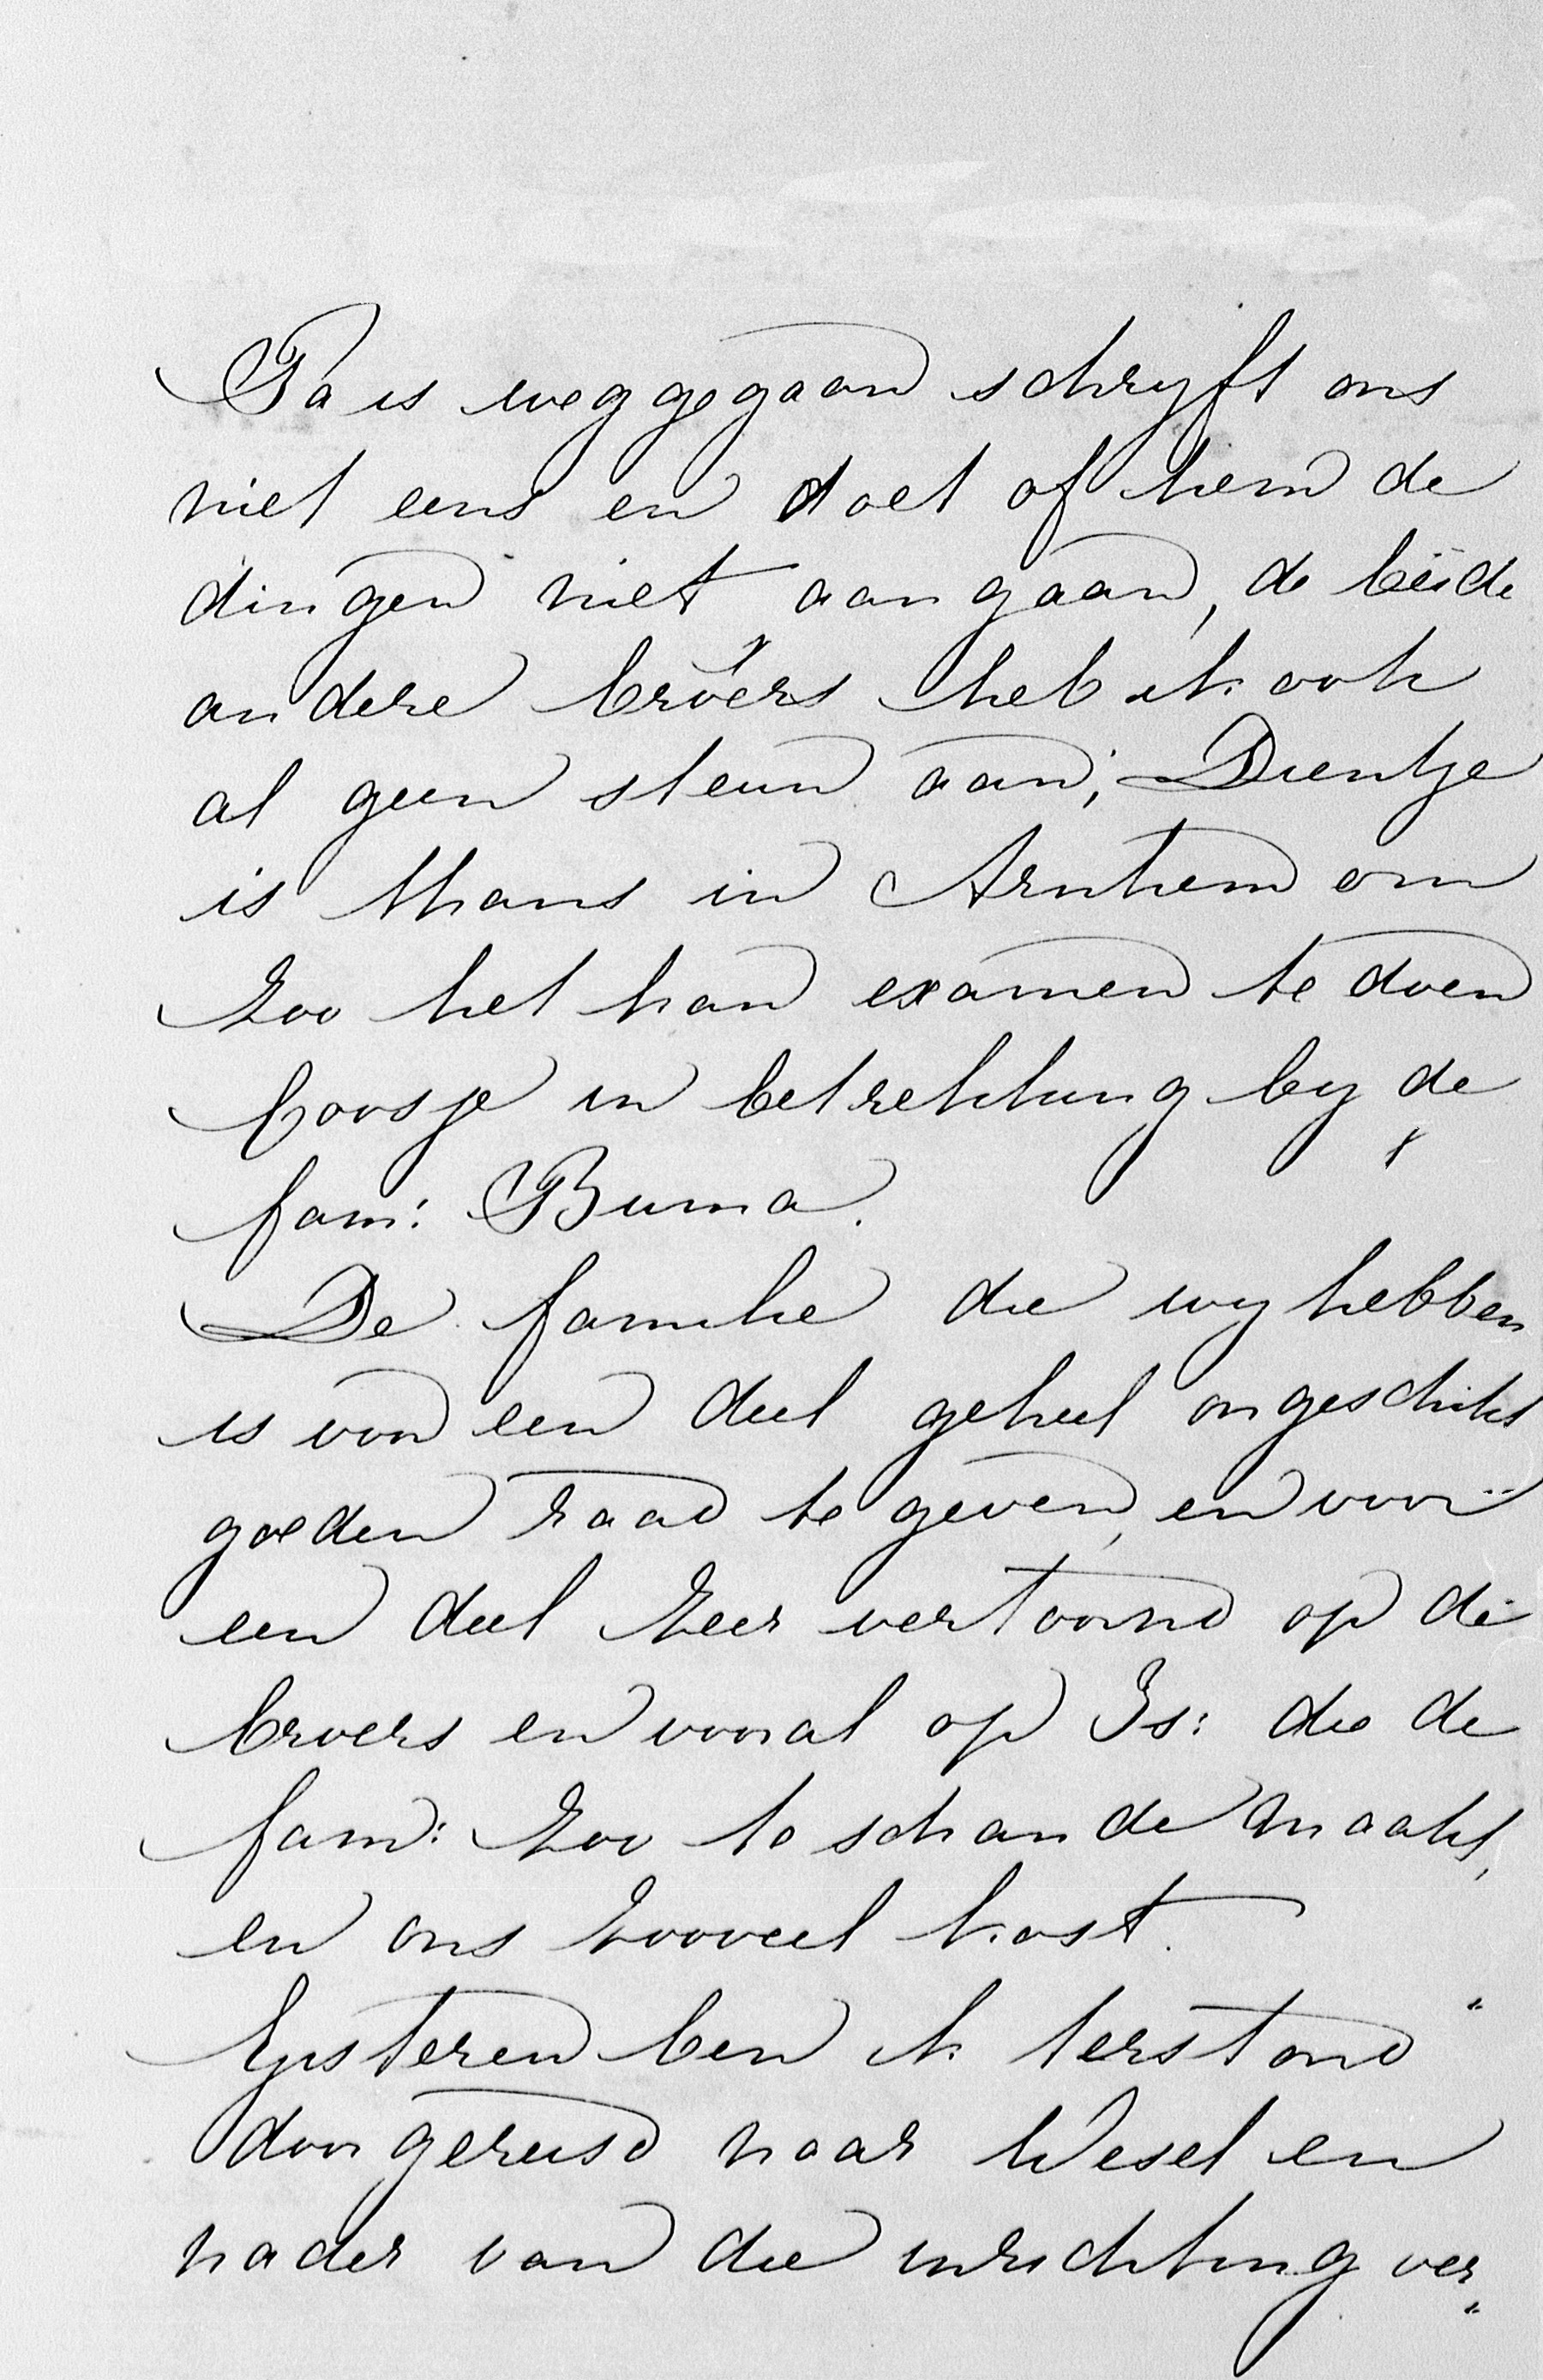 Pa is weggegaan schryft ons
niet eens en doet of hem de
dingen niet aangaan, de beide
andere broers heb ik ook
al geen steun aan; Dientje
is thans in Arnhem om
zoo het kan examen te doen
Coosje in betrekking by de
fam: Buma.
De familie die wy hebben
is voor een deel geheel ongeschikt
goeden raad te geven, en voor
een deel zeer vertoornd op de
broers en vooral op Is: die de
fam: zoo te schande maakt,
en ons zooveel kost.
Gisteren ben ik terstond
doorgereisd naar Wesel en
nader van die inrichting ver„